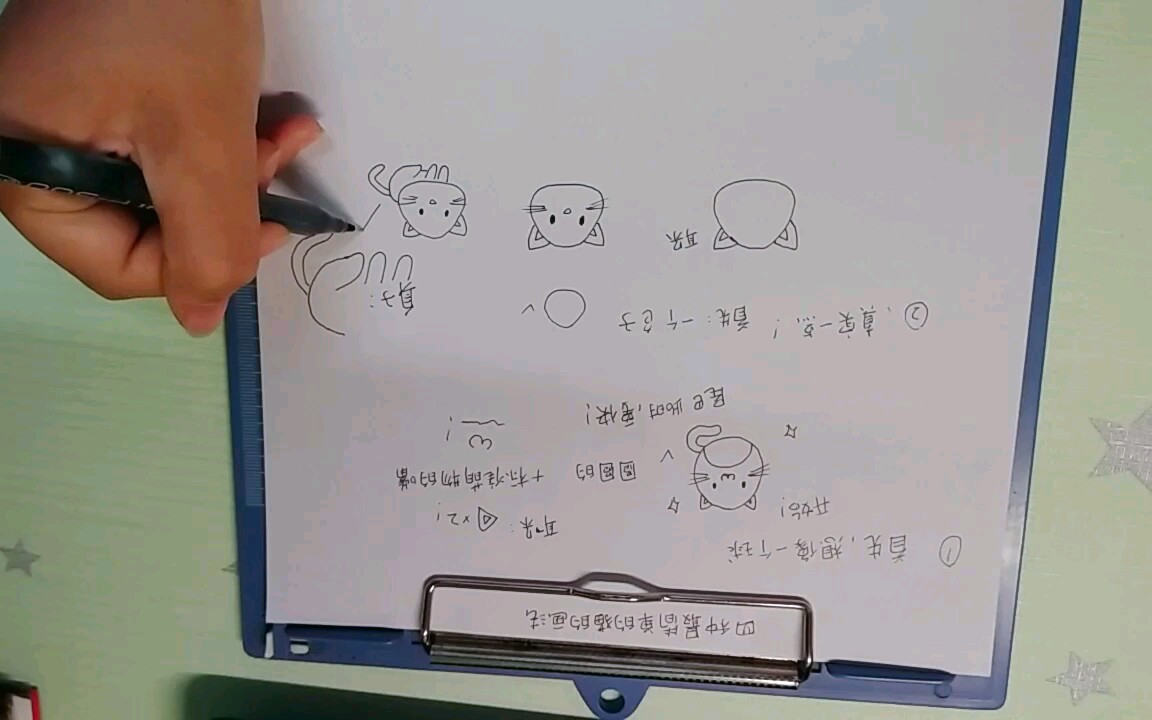 四种最简单的猫的画法
① 首先,想像一个球
开始!
耳朵: ×2!
圆圆的
+标准萌物的嘴
尾巴此时,要快!
②、真实一点! 首先:一个包子
耳朵
身子: